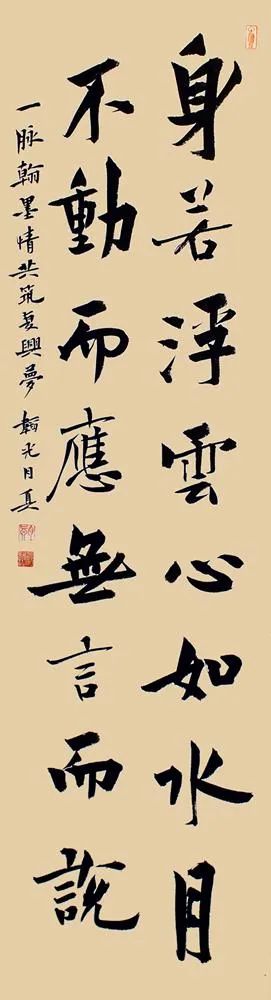 身若浮雲心如水月
不動而應無言而說
一脉翰墨情共筑复興夢 韜光月真